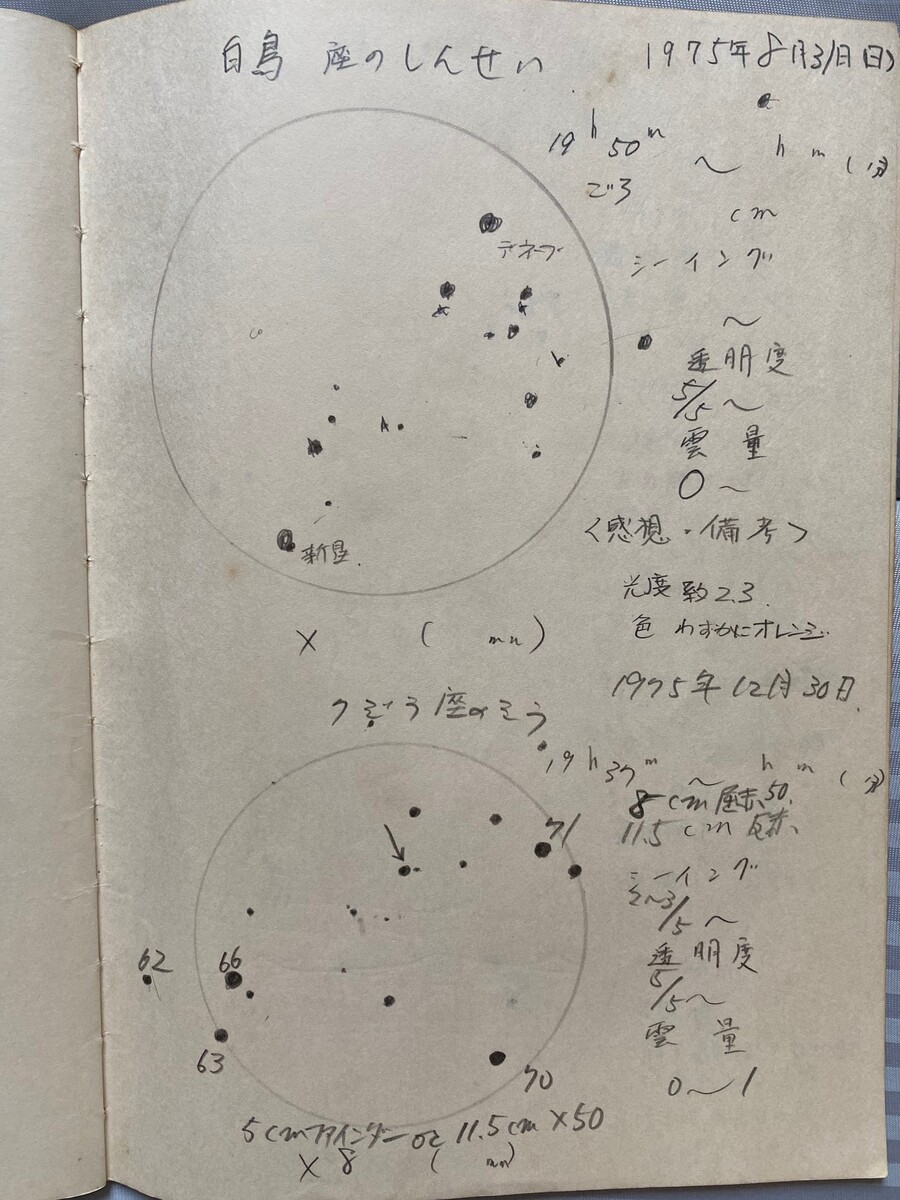 白鳥 座のしんせい
1975年8月31日(日)
19h 50m 〜 h m (分)
ごろ
cm
シーイング
〜
透明度
5/5〜
雲 量
0〜
<感想・備考>
光度 約2.3.
色 わずかにオレンジ
デネブ
新星.
× ( mm)
1975年12月30日.
くじら座のミラ
19h 37m 〜 h m (分)
8cm屈赤50.
11.5cm 反赤
シーイング
2〜3/5〜
透明度
5/5〜
雲 量
0〜1
71
62
66
63
70
5cmファインダー or 11.5cm×50
× 8 ( mm)